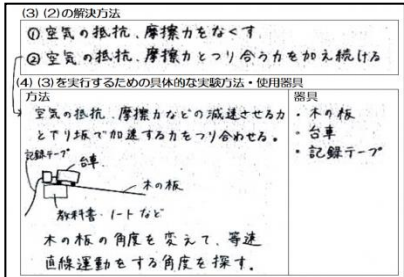 (3) (2)の解決方法
① 空気の抵抗、摩擦力をなくす
② 空気の抵抗、摩擦力とつり合う力を加え続ける
(4) (3)を実行するための具体的な実験方法・使用器具
方法
空気の抵抗、摩擦力などの減速させる力
と下り坂で加速する力をつり合わせる。
記録テープ
台車
木の板
教科書・ノートなど
木の板の角度を変えて、等速
直線運動をする角度を探す。
器具
・木の板
・台車
・記録テープ